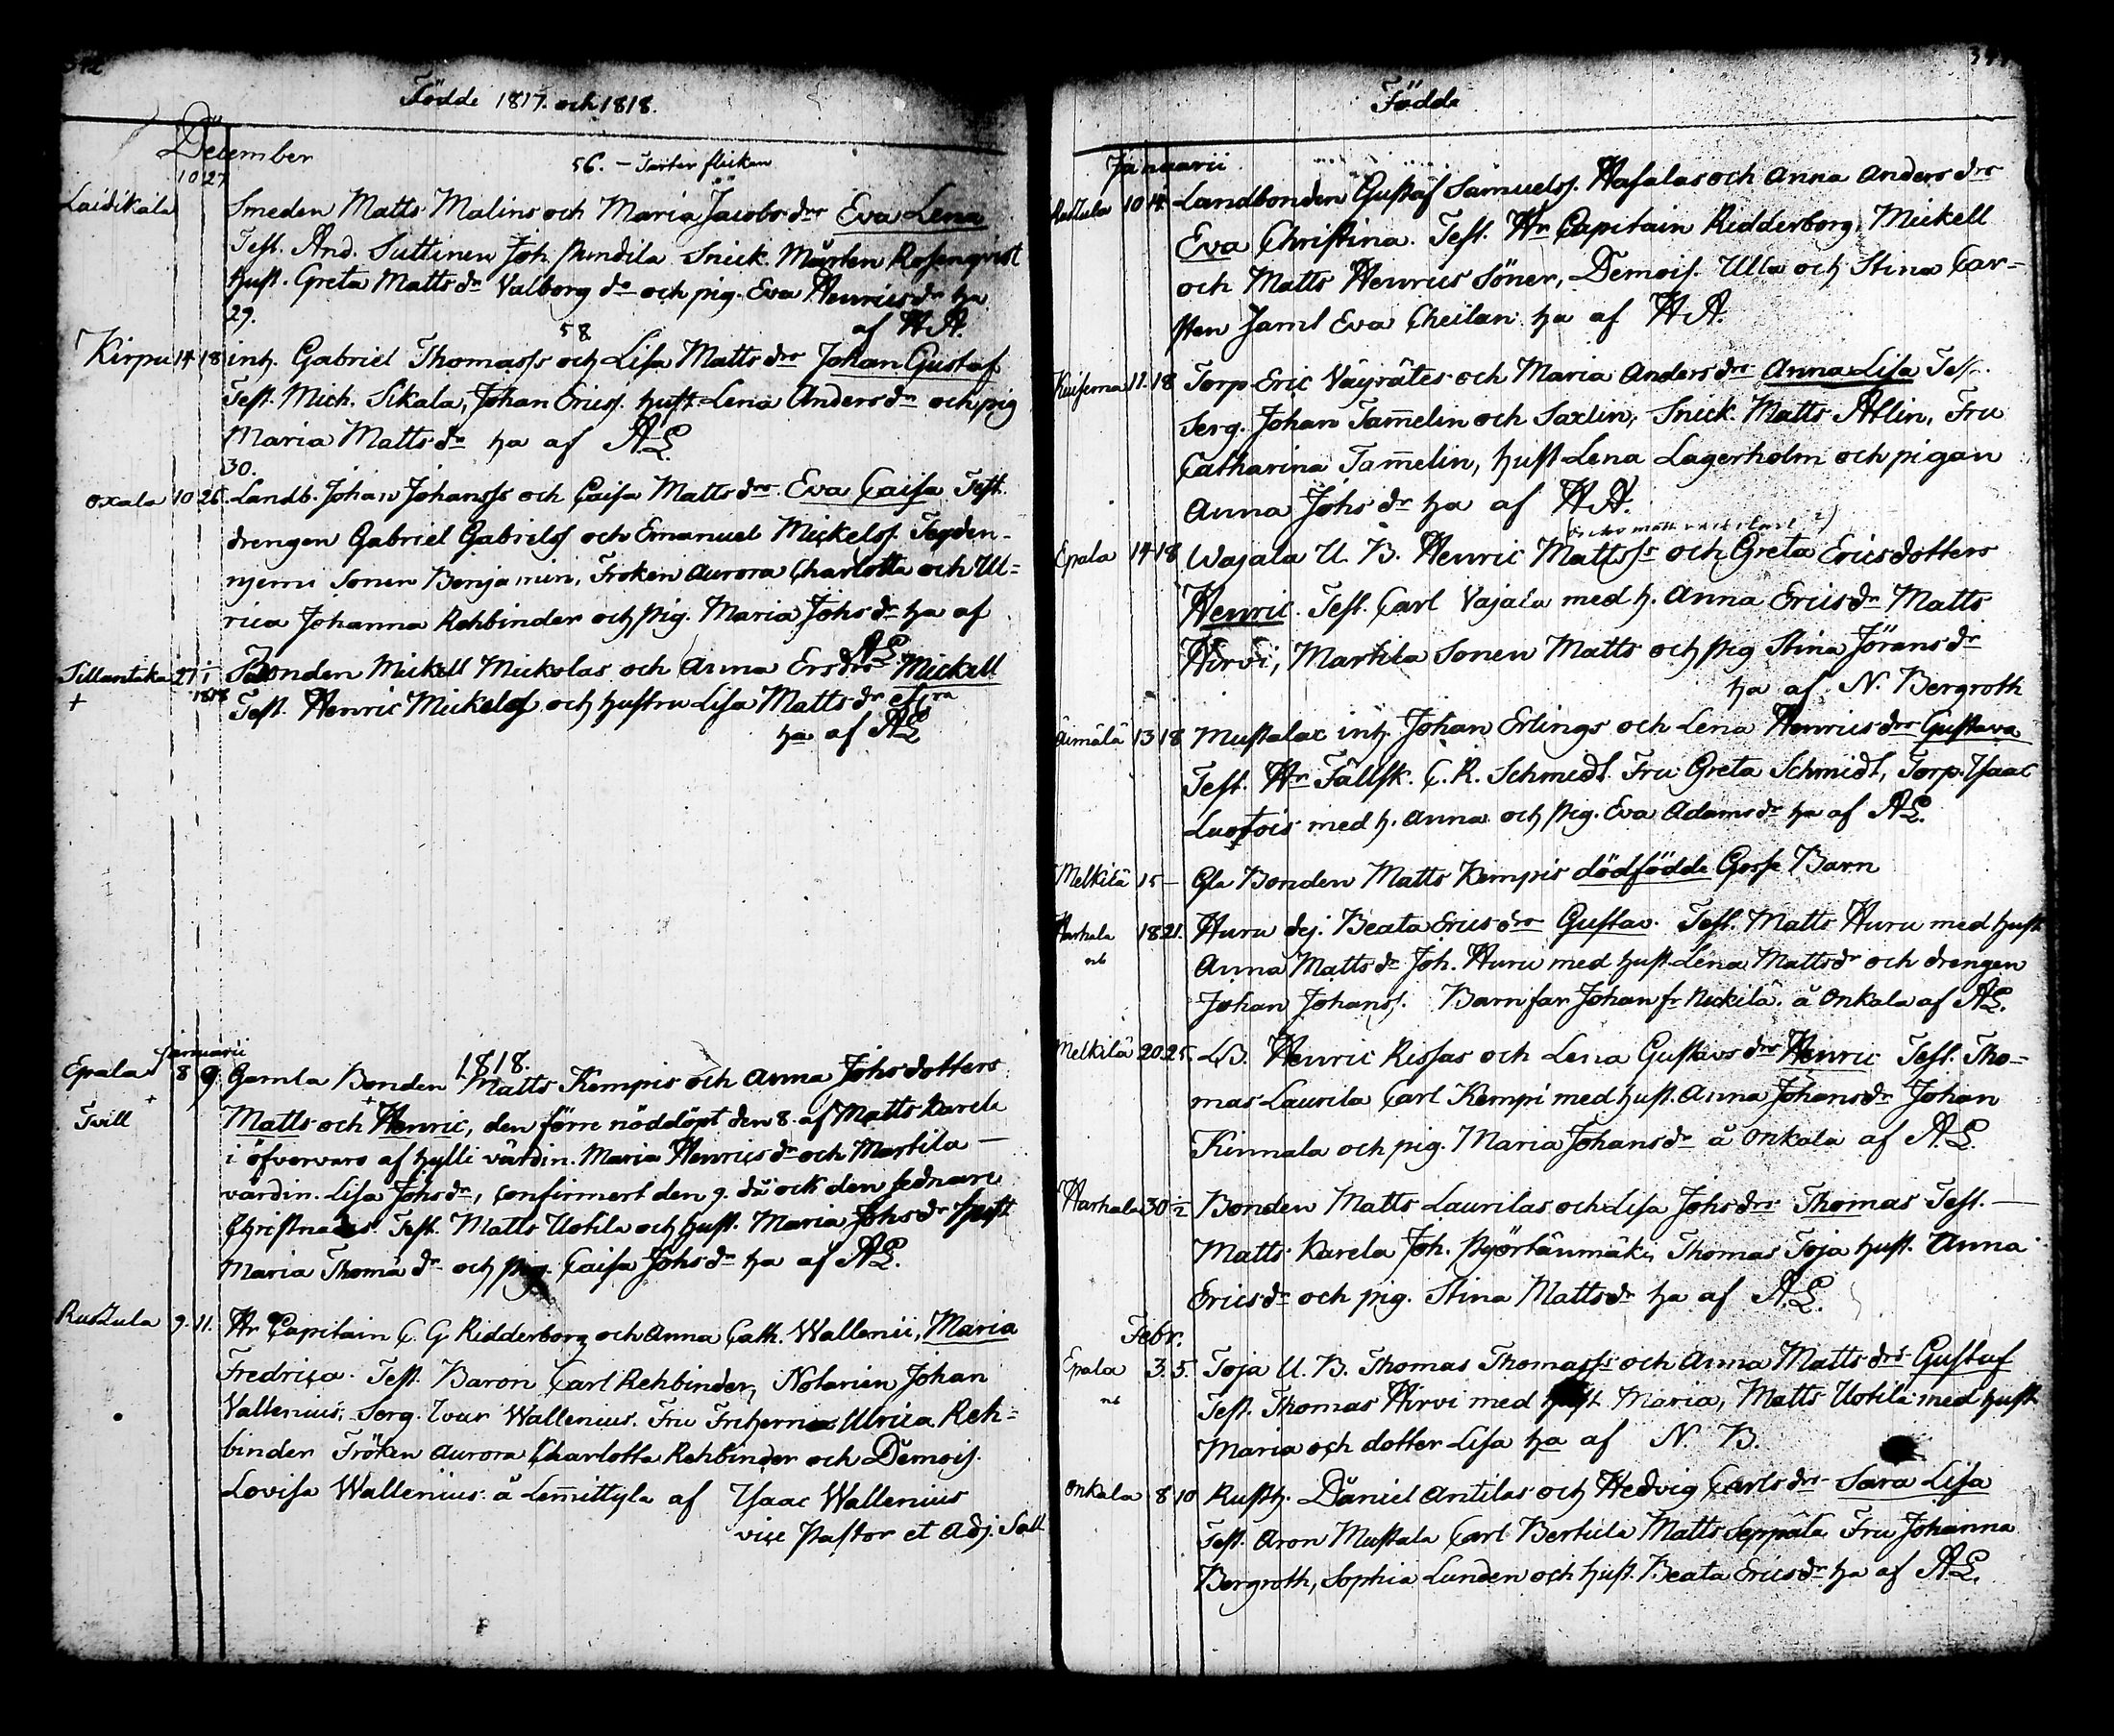 Födde 1817. och 1818.
December
56.
10 27
Laidikala Smeden Matts Malins och Maria Jacobs dr Eva Lena
Test. And. Suttinen Joh. Snick. Mårten Rosenqvist
Hust. Greta Matts dr Valborg do och pig. Eva Henrics dr ha
af HA.
29.
58
Kirpu 14 18 inh. Gabriel Thomass och Lisa Matts dr Johan Gustaf
Test. Mich. Sikala, Johan Ericss. hust. Lena Anders dr och pig
Maria Matts dr ha af AL.
30.
Oxala 10 26 Landb. Johan Johanss och Caisa Matts dr Eva Caisa Test.
drengen Gabriel Gabrielss och Emanuel Mickelss.
Sonen Benjamin, Fröken Aurora Charlotta och Ul=
rica Johanna Rehbinder och pig. Maria Johs dr ha af
AL
Tillantika 27 1 Bonden Mickell Mickolas och Anna Ers dr Mickell
+ 1818 Test. Henric Mickelss och hustru Lisa Matts dr
ha af AL
Januarii
1818.
Epala 8 9 Gamla Bonden Matts Kempis och Anna Johsdotters
Tvill Matts och Henric, den förre nöddöpt den 8. af Matts Karela
i öfvervaro af Hylli värdin. Maria Henrics dr och Martila
värdin. Lisa Johs dr, confirmert den 9. då ock den sednare
Christnades. Test. Matts Uotila och hust. Maria Johs dr hust
Maria Thoma dr och pig. Caisa Johs dr ha af AL.
Rustula 9. 11. Hr Capitain C. G Ridderborg och Anna Cath. Wallenii, Maria
Fredrica. Test. Baron Carl Rehbinder, Notarien Johan
Vallenius, Serg. Ivar Wallenius. Fru Friherrn Ulrica Reh=
binder Fröken Aurora Charlotta Rehbinder och Demois.
Lovisa Wallenius å Lemittyla af Isaac Wallenius
vice Pastor et Adj. Sall
Födde
Januarii
Rustula 10 14 Landbonden Gustaf Samuelss. Hasalas och Anna Anders dr
Eva Christina. Test. Hr Capitain Ridderborg, Mickell
och Matts Henrics Söner, Demois. Ulla och Stina Car-
sten samt Eva Cheilan ha af HA.
11. 18 Torp. Eric Väyrätes och Maria Anders dr Anna Lisa Test.
Serg. Johan Tamelin och Saxlin, Snick. Matts Ahlin, Fru
Catharina Tamelin, hust. Lena Lagerholm och pigan
Anna Johs dr ha af HA.
Epala 14 18 Wajala U. B. Henric Mattss och Greta Ericsdotters
Henric. Test. Carl Vajala med h. Anna Erics dr Matts
Hirvi, Martila Sonen Matts och pig Stina Jörans dr
ha af N. Bergroth
Äimälä 13 18 Mustalax inh. Johan Erlings och Lena Henrics dr Gustava
Test. Hr Fältsk. C. R. Schmidt. Fru Greta Schmidt, Torp. Isaac
Luotois med h. Anna och pig. Eva Adams dr ha af AL.
Melkilä 15 – Gla Bonden Matts Kempis dödfödde Gosse Barn
Harhala 18 21. Huru dej. Beata Erics dr Gustav. Test. Matts Huru med hust
Anna Matts dr Joh. Huru med hust. Lena Matts dr och drengen
Johan Johanss. Barnfar Johan fr. å Onkala af AL.
Melkilä 20 25. LB. Henric Rissas och Lena Gustavs dr Henric Test. Tho-
mas Laurila Carl Kempi med hust. Anna Johans dr Johan
Kinnala och pig. Maria Johans dr å Onkala af A.L.
Harhala 30 1/2 Bonden Matts Laurilas och Lisa Johs dr Thomas Test.
Matts Karela Joh. Pyörtänmäki, Thomas Toja hust. Anna
Erics dr och pig. Stina Matts dr ha af A.L.
Febr.
Epala 3. 5. Toja U. B. Thomas Thomass och Anna Matts dr Gustaf
Test. Thomas Hirvi med hust Maria, Matts Uotila med hust.
Maria och dotter Lisa ha af N. B.
Onkala 8 10 Rusth. Daniel Antilas och Hedvig Carls dr Sara Lisa
Test. Aron Mustala Carl Bertula Matts Seppälä Fru Johanna
Bergroth, Sophia Lunden och hust. Beata Erics dr ha af AL.